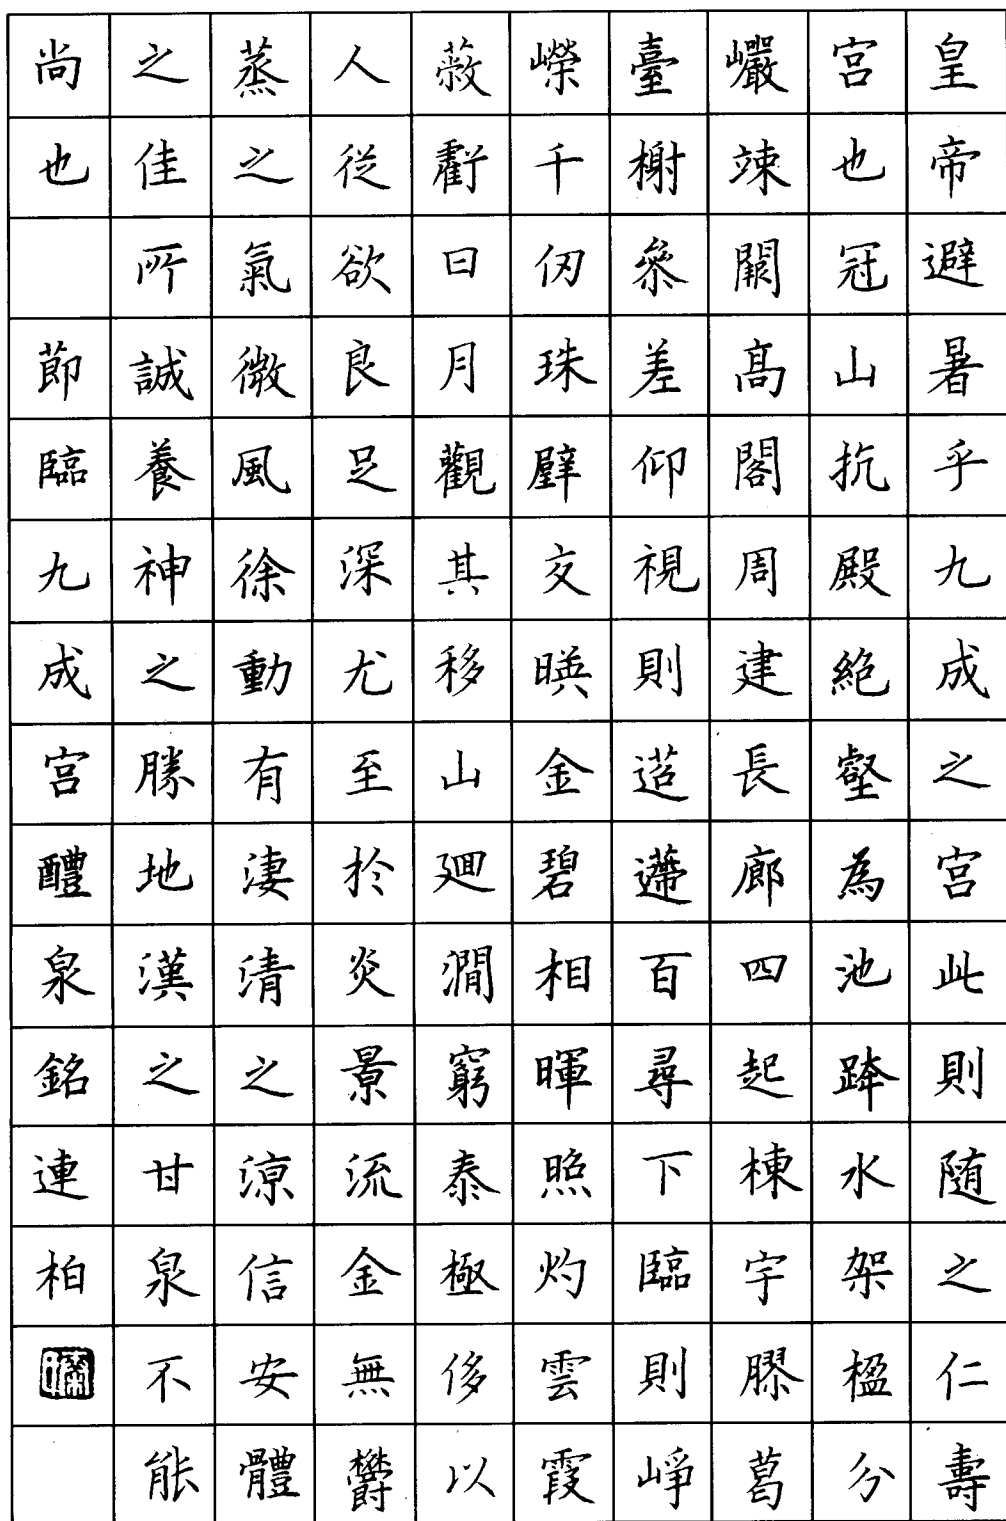 皇帝避暑乎九成之宮此則随之仁壽
宮也冠山抗殿絶壑為宮池跨水架楹分
巗竦闕高閣周建長廊四起棟宇膠葛
臺榭叅差仰視則迢遰百尋下臨則崢
嶸千仞珠壁交暎金碧相暉照灼雲霞
蔽虧日月觀其移山廻澗窮泰極侈以
人從欲良足深尤至於炎景流金無欝
蒸之氣微風徐動有淒清之涼信安體
之佳所誠養神之勝地漢之甘泉不能
尚也 節臨九成宮醴泉銘連柏